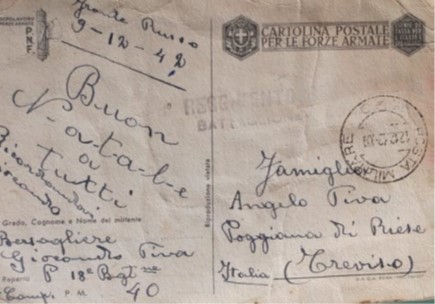 DOPOLAVORO
P.N.F.
Fronte Russo
9-12-42
Buon
Natale
a
tutti
Ricordandovi
Giocondo
Grado, Cognome e Nome del mittente
Bersagliere
Giocondo Tiva
Reparto P 18° Bgt
Camp. P. M. 40
Riproduzione vietata
CARTOLINA POSTALE
PER LE FORZE ARMATE
POSTA MILITARE
Famiglia
Angelo Tiva
Poggiana di Riese
Italia (Treviso)